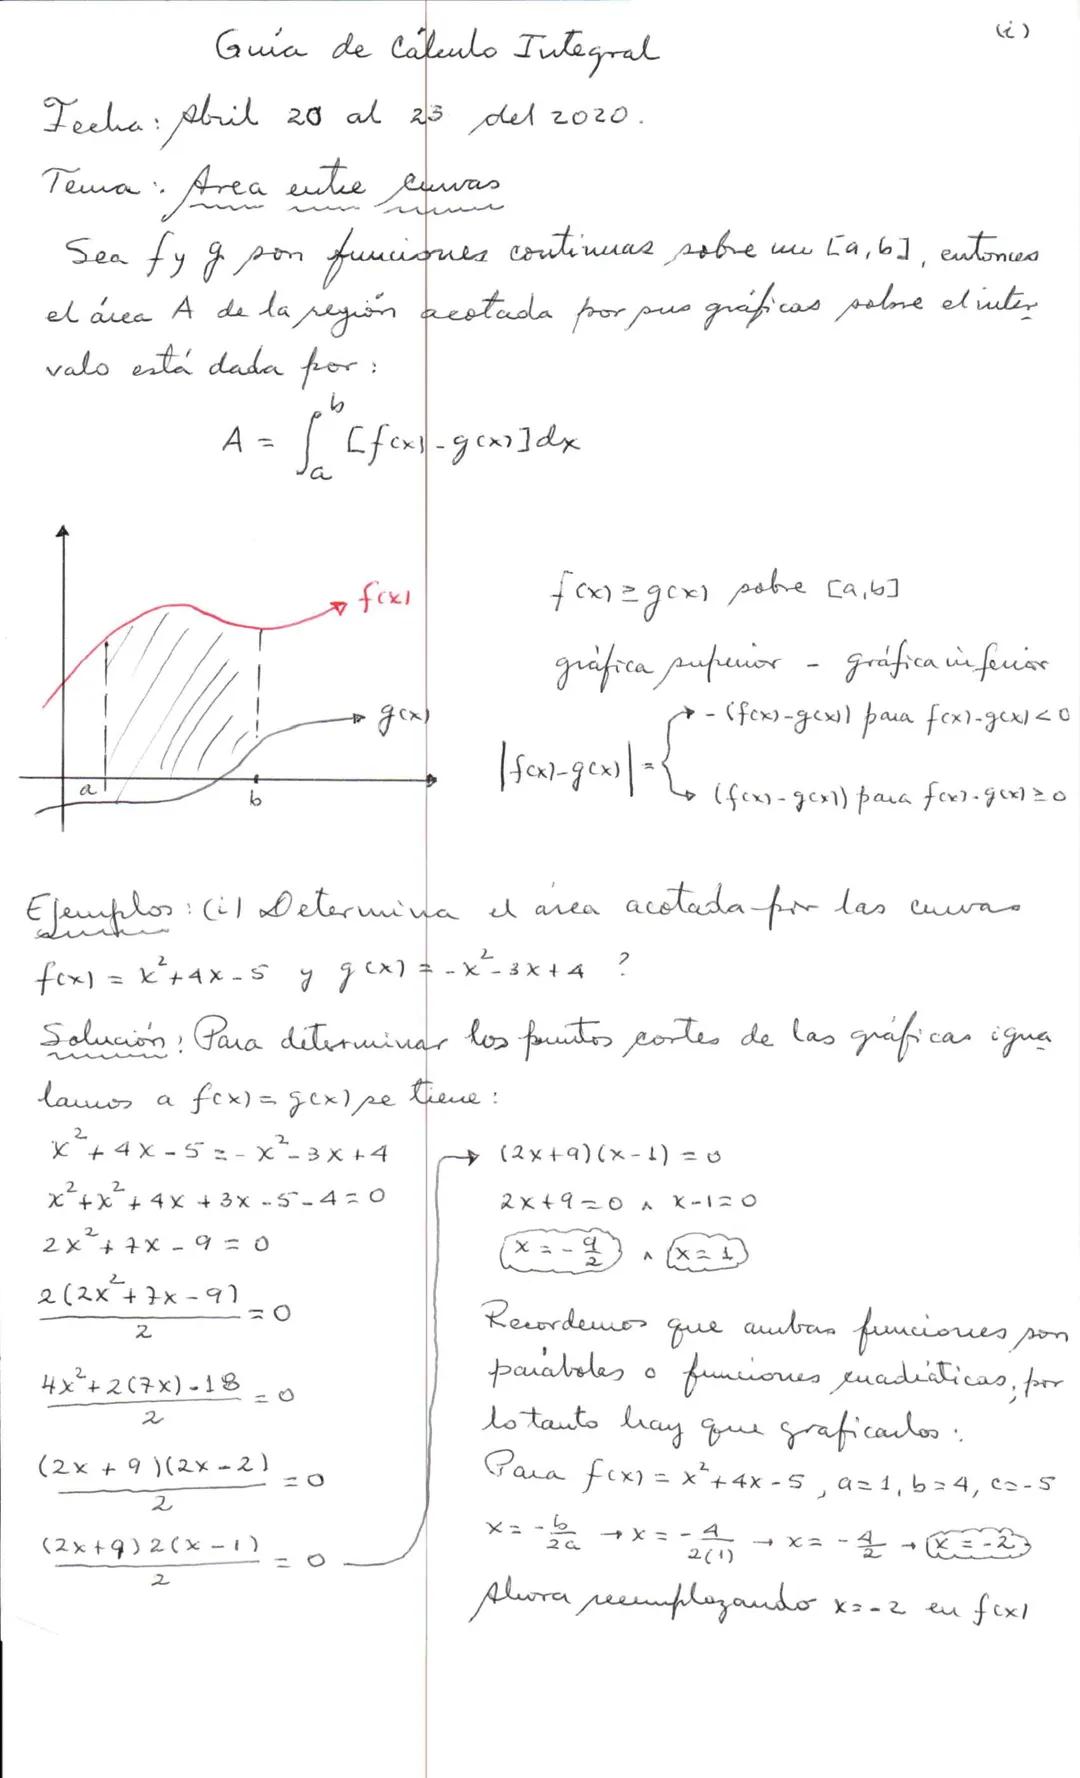 (i)
Guía de Cálculo Integral
Fecha: Abril 20 al 23 del 2020.
Tema: Area entre curvas
Sea f y g son funciones continuas sobre un [a,b], entonces
el área A de la región acotada por sus gráficas sobre el inter
valo está dada por:
A = ∫ₐᵇ [f(x) - g(x)] dx
f(x)
g(x)
a
b
f(x) ≥ g(x) sobre [a,b]
gráfica superior - gráfica inferior
|f(x)-g(x)| = {
- (f(x)-g(x)) para f(x)-g(x) < 0
(f(x)-g(x)) para f(x)-g(x) ≥ 0
Ejemplos: (i) Determina el área acotada por las curvas
f(x) = x²+4x-5 y g(x) = -x²-3x+4 ?
Solución: Para determinar los puntos cortes de las gráficas igua
lamos a f(x) = g(x) se tiene:
x²+4x-5 = -x²-3x+4
x²+x²+4x+3x-5-4=0
2x²+7x-9=0
2(2x²+7x-9)/2 = 0
4x²+2(7x)-18/2 = 0
(2x+9)(2x-2)/2 = 0
(2x+9)2(x-1)/2 = 0
→ (2x+9)(x-1) = 0
2x+9=0 ∧ x-1=0
x = -9/2 ∧ x=1
Recordemos que ambas funciones son
parábolas o funciones cuadráticas, por
lo tanto hay que graficarlos:
Para f(x) = x²+4x-5, a=1, b=4, c=-5
x = -b/2a → x = -4/2(1) → x = -4/2 → x = -2
Ahora reemplazando x=-2 en f(x)